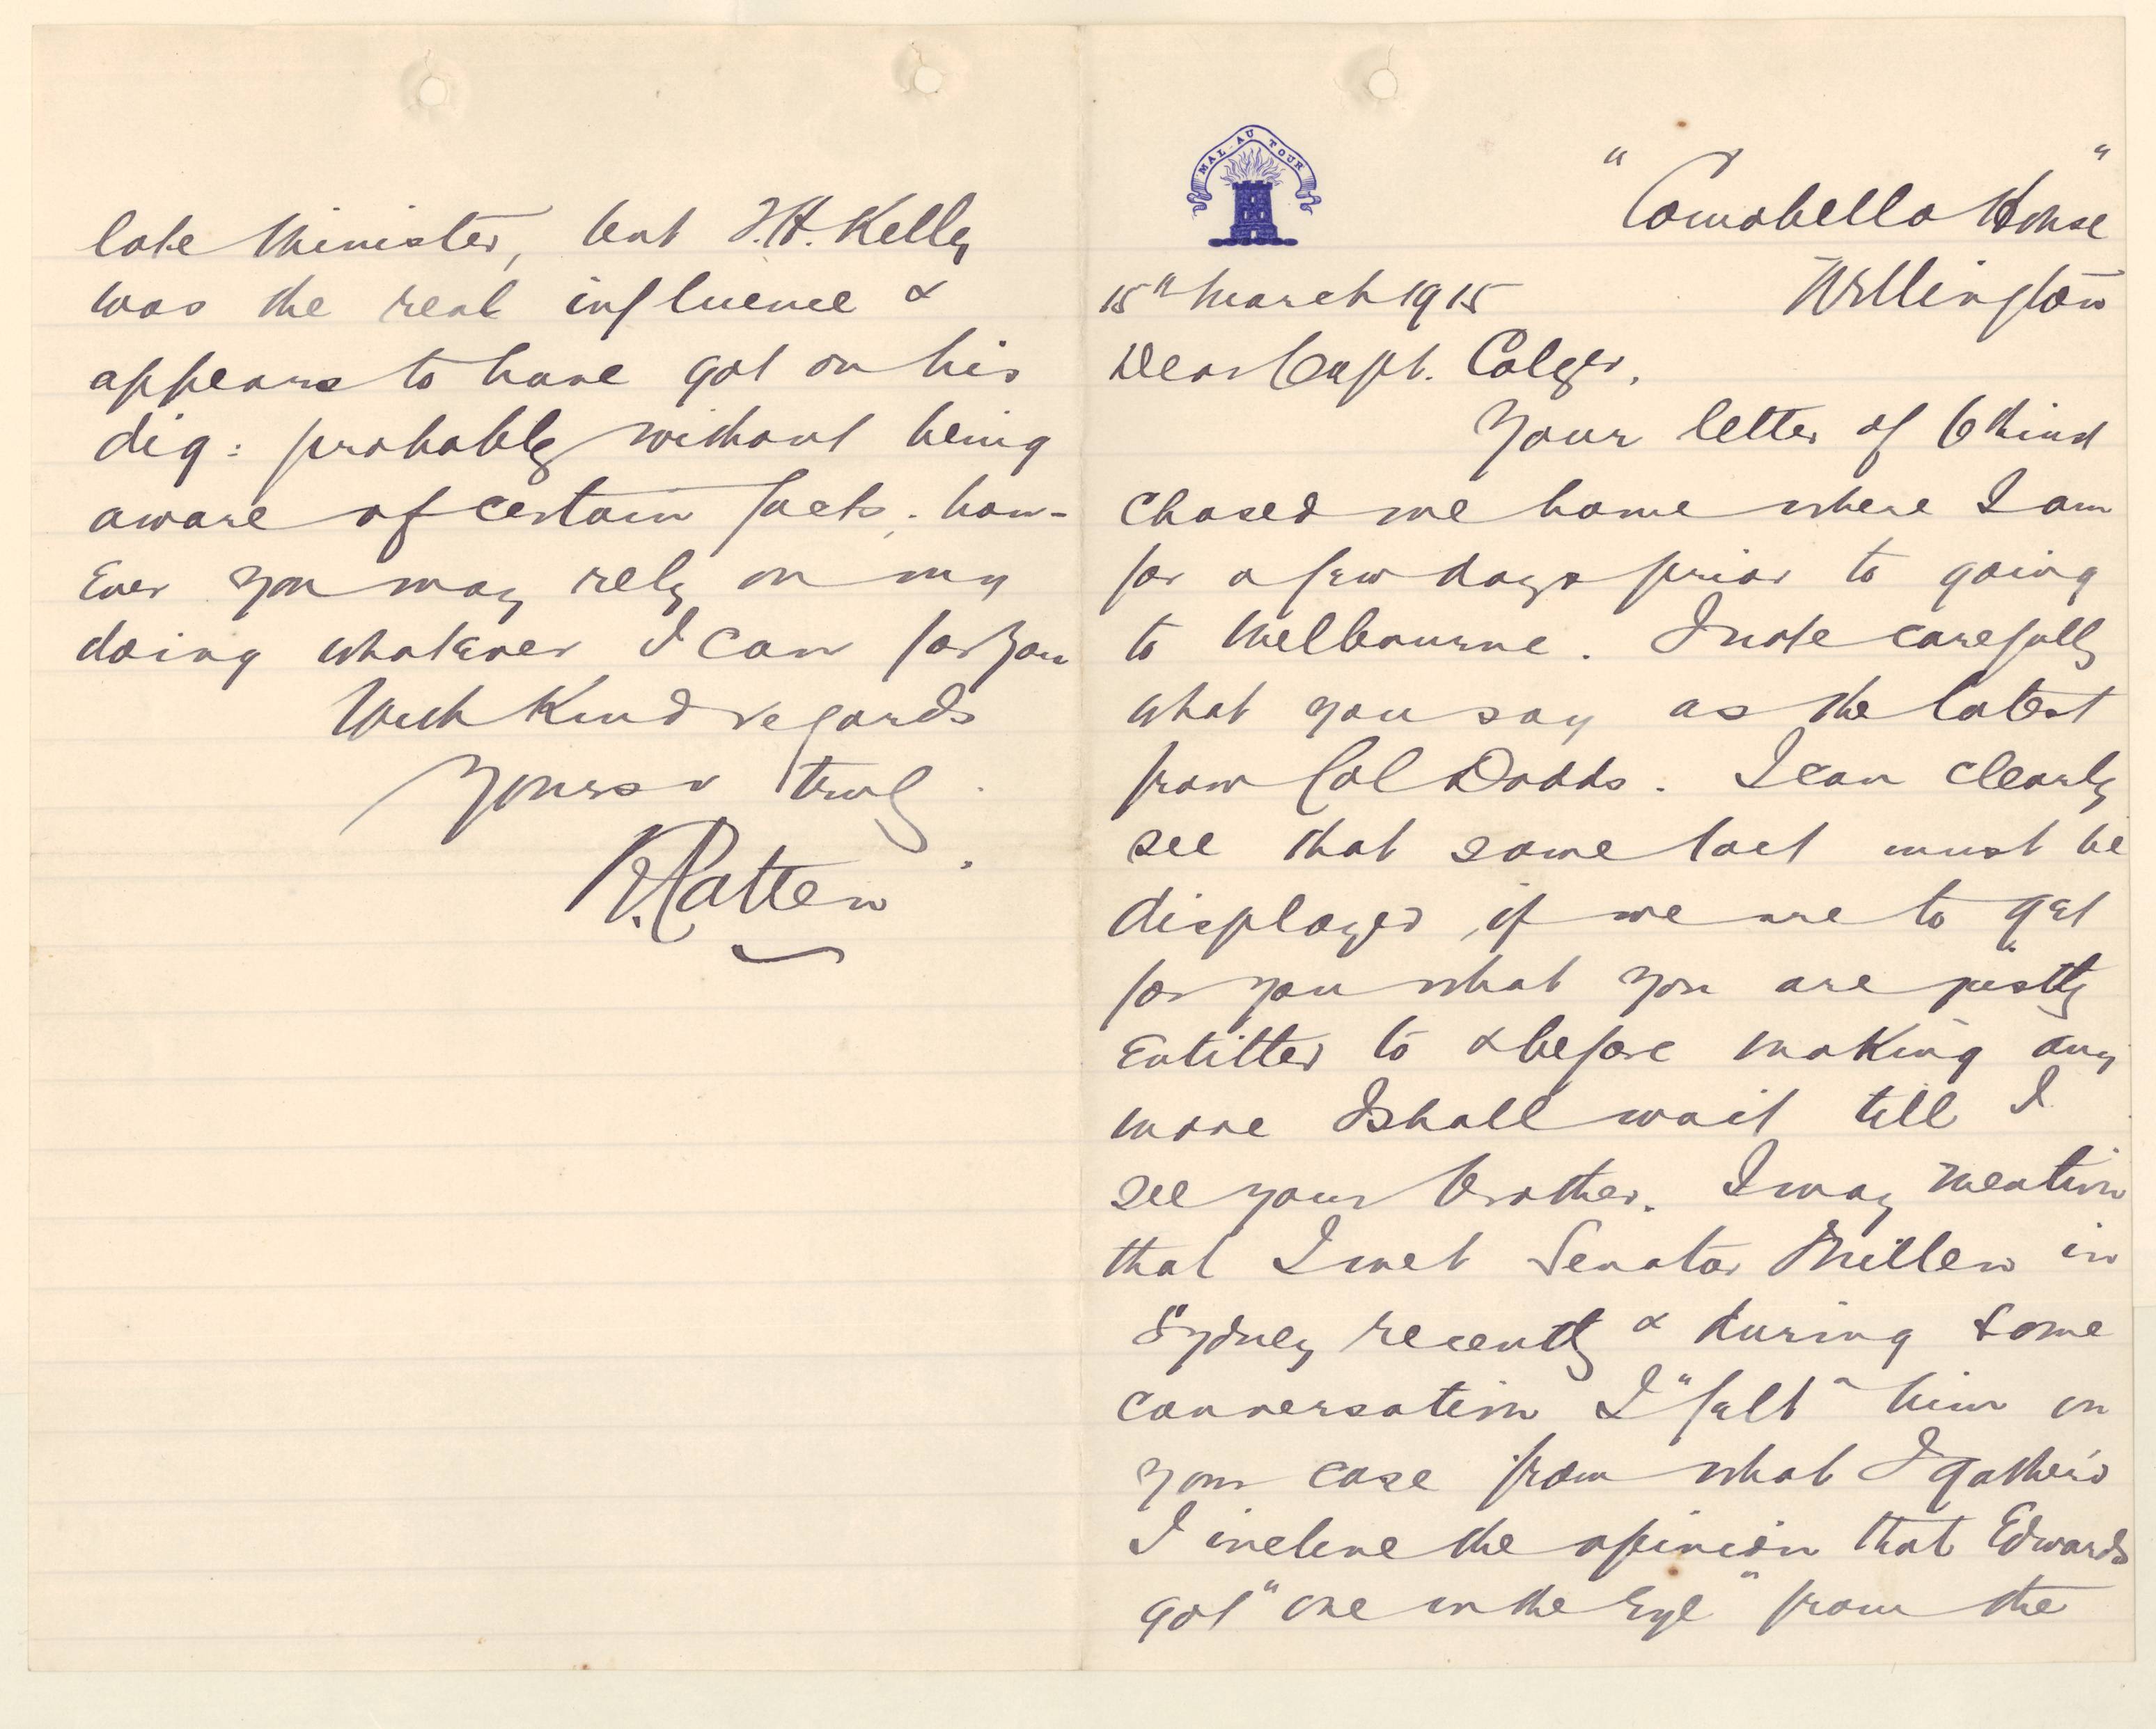 MAL-AU TOUR
"Comobella House"
15th March 1915 Wellington
Dear Capt. Colyer,
Your letter of 6th inst
chased me home where I am
for a few days prior to going
to Melbourne. I note carefully
what you say as the latest
from Col Dodds. I can clearly
see that some tact must be
displayed, if we are to get
for you what you are justly
Entitled to & before making any
more I shall wait till I
see your brother. I may mention
that I met Senator Millen in
Sydney recently & during some
conversation I "felt" him on
your case from what I gather'd
I incline the opinion that Edwards
got "one in the Eye" from the
late Minister, but T.H. Kelly
was the real influence &
appears to have got on his
dig: probably without being
aware of certain facts, how-
Ever you may rely on my
doing whatever I can for you
With Kind regards
Yours v truly
R. Patten